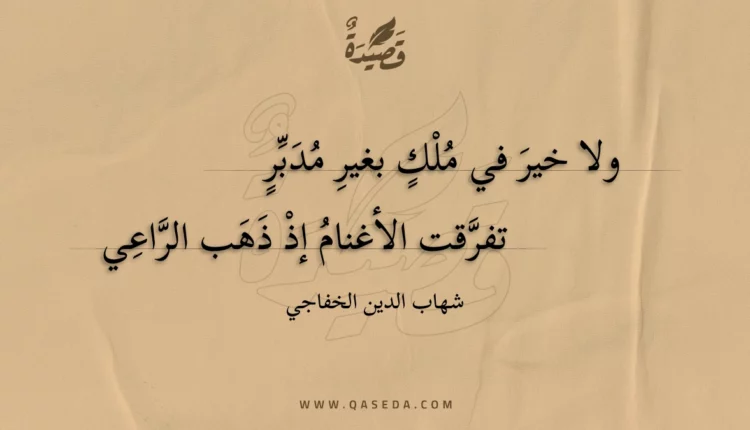 قَصِيدَةٌ
ولا خيرَ في مُلْكٍ بغيرِ مُدَبِّرٍ
تفرَّقت الأغنامُ إذْ ذَهَب الرَّاعِي
شهاب الدين الخفاجي
WWW.QASEDA.COM